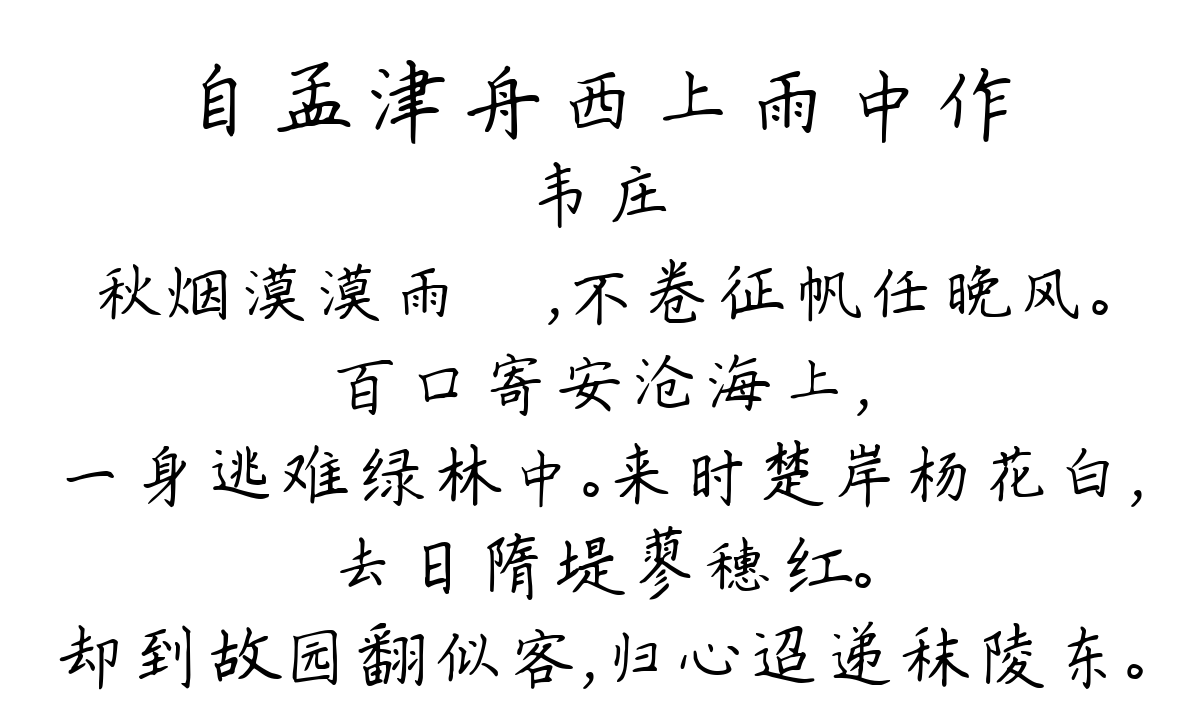 自孟津舟西上雨中作
韦庄
秋烟漠漠雨 ,不卷征帆任晚风。
百口寄安沧海上,
一身逃难绿林中。来时楚岸杨花白,
去日隋堤蓼穗红。
却到故园翻似客,归心迢递秣陵东。